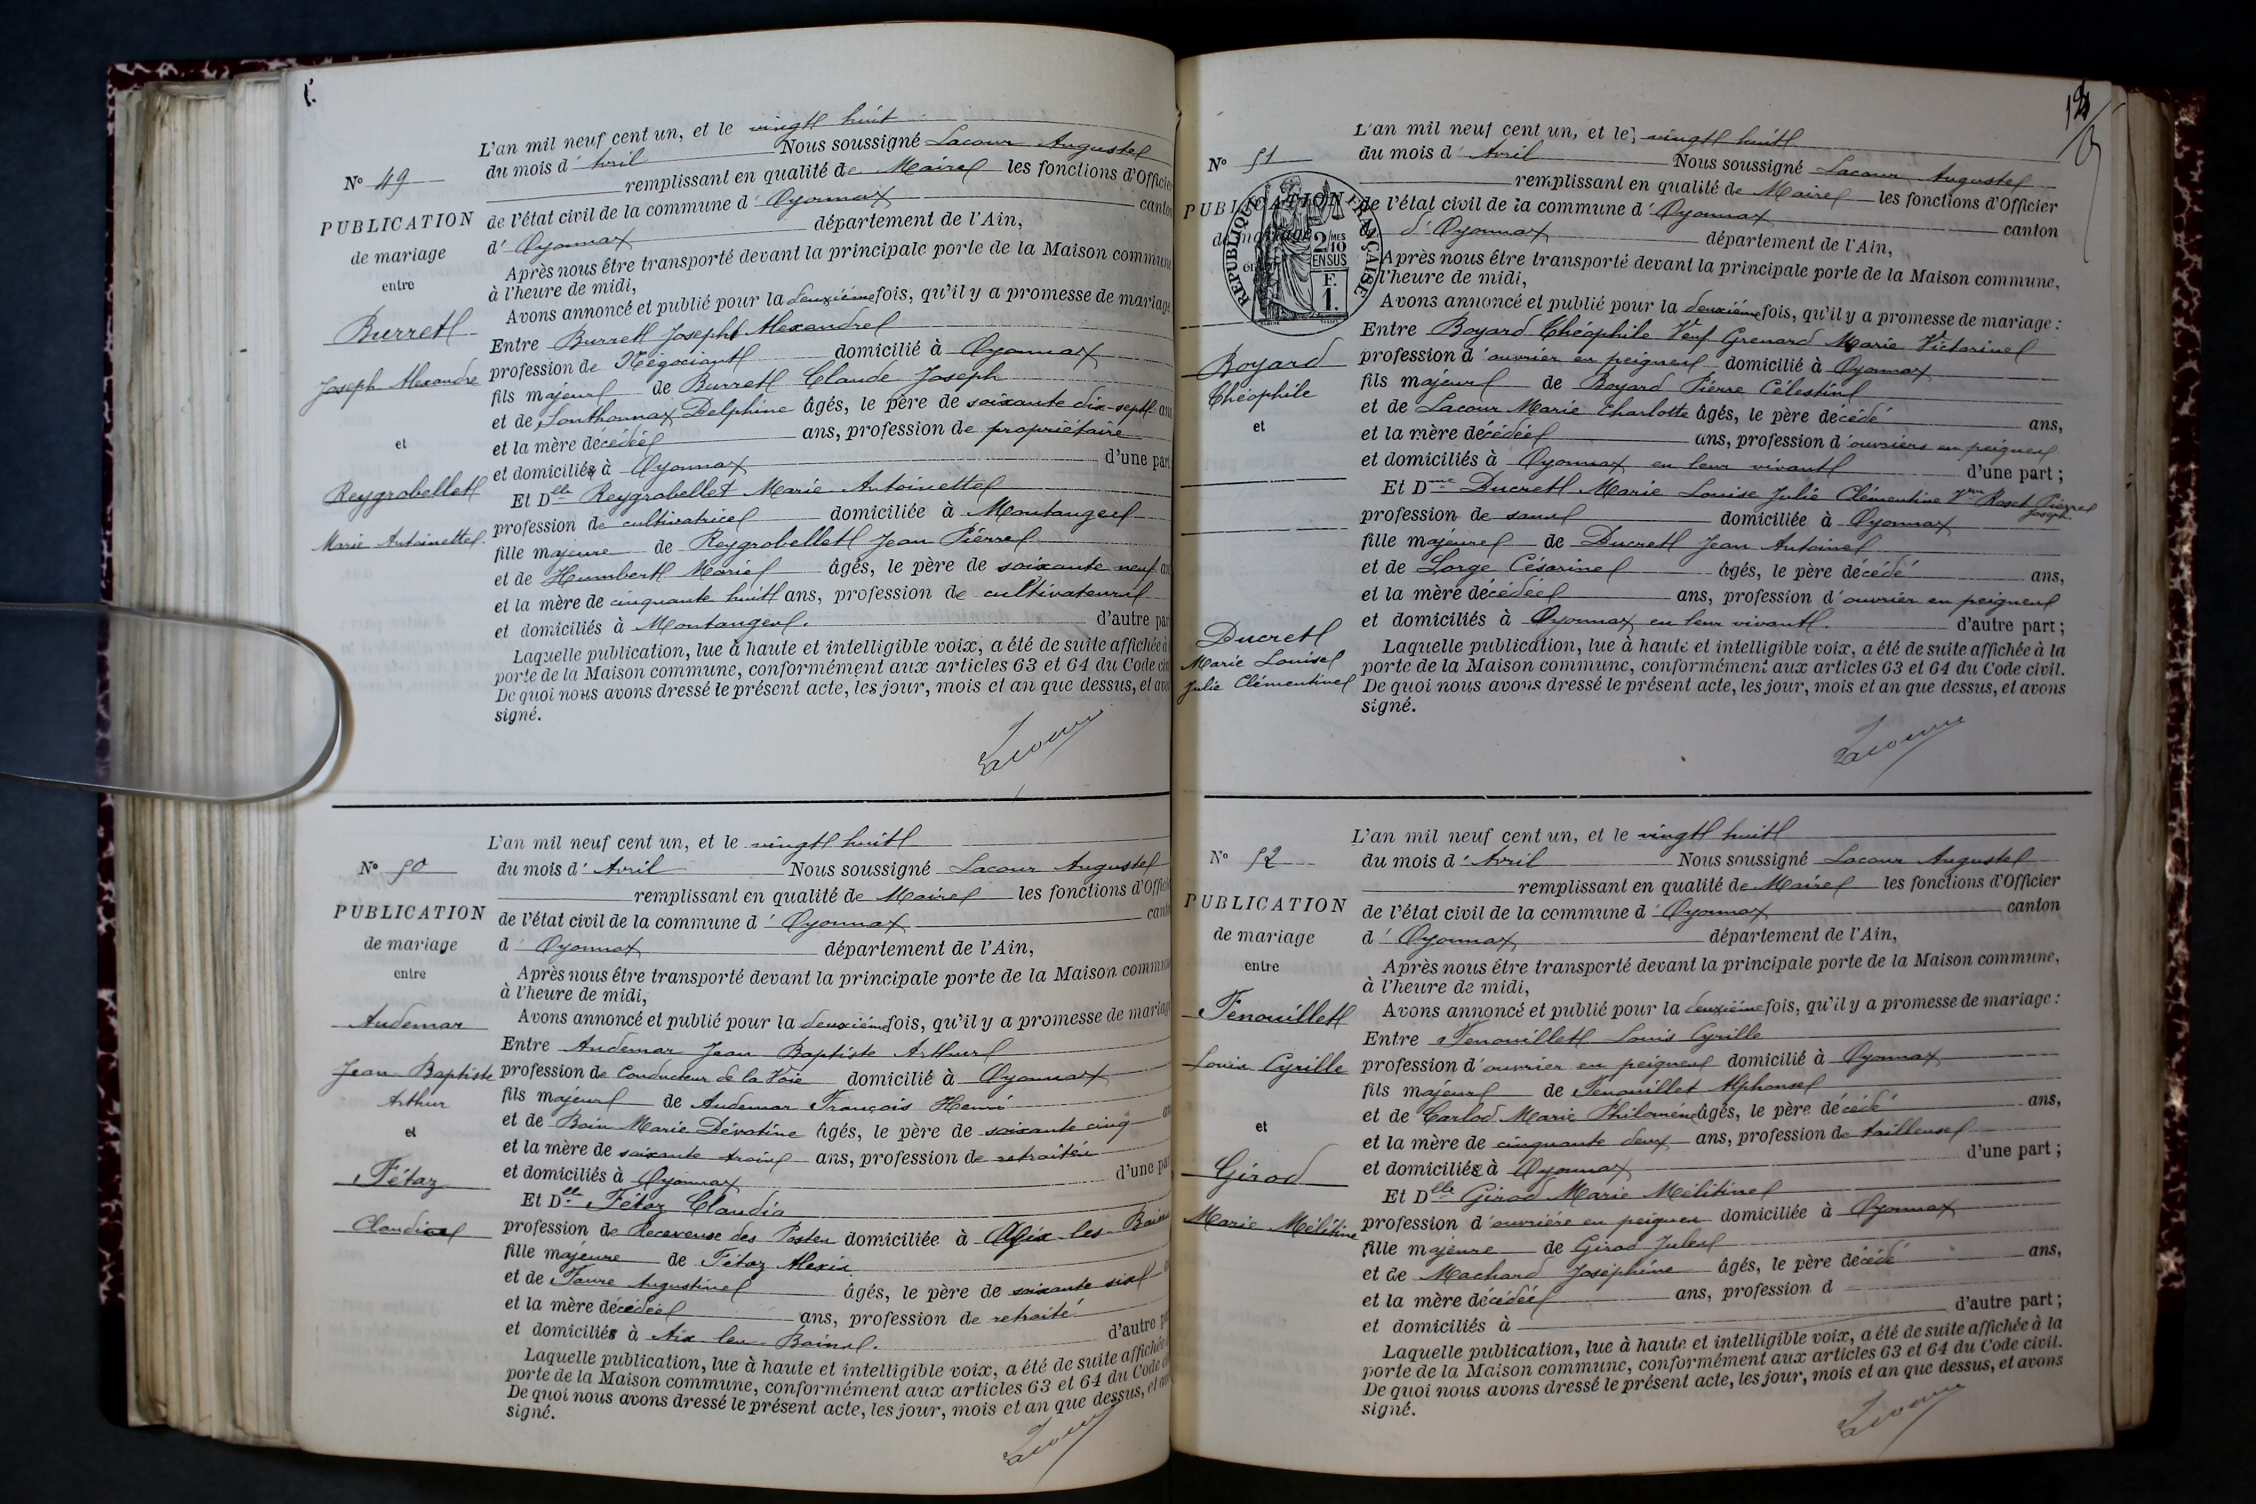 L'an mil neuf cent un, et le vingt huit
du mois d' Avril Nous soussigné Lacour Auguste
N° 49
remplissant en qualité de Maire les fonctions d'Officier
PUBLICATION
de l'état civil de la commune d' Oyonnax canton
de mariage
d' Oyonnax département de l'Ain,
entre
Après nous être transporté devant la principale porte de la Maison commune
à l'heure de midi,
Avons annoncé et publié pour la deuxième fois, qu'il y a promesse de mariage
Burret
Entre Burret Joseph Alexandre
Joseph Alexandre
profession de Négociant domicilié à Oyonnax
fils majeur de Burret Claude Joseph
et de Sonthonnax Delphine âgés, le père de soixante dix-sept ans
et
et la mère décédée ans, profession de propriétaire
et domiciliés à Oyonnax d'une part
Reygrobellet
Et Dlle Reygrobellet Marie Antoinette
Marie Antoinette
profession de cultivatrice domiciliée à Montange
fille majeure de Reygrobellet Jean Pierre
et de Humbert Marie âgés, le père de soixante neuf
et la mère de cinquante huit ans, profession de cultivateurs
et domiciliés à Montange. d'autre part
Laquelle publication, lue à haute et intelligible voix, a été de suite affichée à
porte de la Maison commune, conformément aux articles 63 et 64 du Code
De quoi nous avons dressé le présent acte, les jour, mois et an que dessus, et
signé.
Lacour
L'an mil neuf cent un, et le vingt huit
N° 50
du mois d' Avril Nous soussigné Lacour Auguste
remplissant en qualité de Maire les fonctions d'Officier
PUBLICATION
de l'état civil de la commune d' Oyonnax canton
de mariage
d' Oyonnax département de l'Ain,
entre
Après nous être transporté devant la principale porte de la Maison commune
à l'heure de midi,
Audemar
Avons annoncé et publié pour la deuxième fois, qu'il y a promesse de mariage
Entre Audemar Jean Baptiste Arthur
Jean Baptiste
Arthur
profession de Conducteur de la Voie domicilié à Oyonnax
fils majeur de Audemar François Henri
et
et de Boin Marie Dévotine âgés, le père de soixante cinq
et la mère de soixante trois ans, profession de retraités
Fétaz
et domiciliés à Oyonnax d'une part
Et Dlle Fétaz Claudia
Claudia
profession de Receveuse des Postes domiciliée à Aix les Bains
fille majeure de Fétaz Alexis
et de Favre Augustine âgés, le père de soixante six
et la mère décédée ans, profession de retraité
et domiciliés à Aix les Bains. d'autre
Laquelle publication, lue à haute et intelligible voix, a été de suite affichée
porte de la Maison commune, conformément aux articles 63 et 64 du Code
De quoi nous avons dressé le présent acte, les jour, mois et an que dessus, et
signé.
Lacour
L'an mil neuf cent un, et le vingt huit
N° 51
du mois d' Avril Nous soussigné Lacour Auguste
remplissant en qualité de Maire les fonctions d'Officier
PUBLICATION
de l'état civil de la commune d' Oyonnax canton
de mariage
d' Oyonnax département de l'Ain,
RÉPUBLIQUE FRANÇAISE
2/10 MES
EN SUS
F.
1.
Après nous être transporté devant la principale porte de la Maison commune,
l'heure de midi,
Avons annoncé et publié pour la deuxième fois, qu'il y a promesse de mariage :
Boyard
Théophile
Entre Boyard Théophile Vf Grenard Marie Victorine
profession d' ouvrier en peignes domicilié à Oyonnax
fils majeur de Boyard Pierre Célestin
et
et de Lacour Marie Charlotte âgés, le père décédé ans,
et la mère décédée ans, profession d' ouvriers en peignes
et domiciliés à Oyonnax en leur vivant d'une part ;
Et Dme Ducret Marie Louise Julie Clémentine Vve Roset Pierre
Joseph
profession de sans domiciliée à Oyonnax
fille majeure de Ducret Jean Antoine
et de Lorge Césarine âgés, le père décédé ans,
et la mère décédée ans, profession d' ouvrier en peignes
Ducret
Marie Louise
Julie Clémentine
et domiciliés à Oyonnax en leur vivant. d'autre part ;
Laquelle publication, lue à haute et intelligible voix, a été de suite affichée à la
porte de la Maison commune, conformément aux articles 63 et 64 du Code civil.
De quoi nous avons dressé le présent acte, les jour, mois et an que dessus, et avons
signé.
Lacour
L'an mil neuf cent un, et le vingt huit
N° 52
du mois d' Avril Nous soussigné Lacour Auguste
remplissant en qualité de Maire les fonctions d'Officier
PUBLICATION
de l'état civil de la commune d' Oyonnax canton
de mariage
d' Oyonnax département de l'Ain,
entre
Après nous être transporté devant la principale porte de la Maison commune,
à l'heure de midi,
Fenouillet
Avons annoncé et publié pour la deuxième fois, qu'il y a promesse de mariage :
Entre Fenouillet Louis Cyrille
Louis Cyrille
profession d' ouvrier en peignes domicilié à Oyonnax
fils majeur de Fenouillet Alphonse
et de Carlod Marie Philomène âgés, le père décédé ans,
et
et la mère de cinquante deux ans, profession de tailleuse
et domiciliée à Oyonnax d'une part ;
Girod
Et Dlle Girod Marie Mélitine
Marie Mélitine
profession d' ouvrière en peignes domiciliée à Oyonnax
fille majeure de Girod Jules
et de Machard Joséphine âgés, le père décédé ans,
et la mère décédée ans, profession d
et domiciliés à d'autre part ;
Laquelle publication, lue à haute et intelligible voix, a été de suite affichée à la
porte de la Maison commune, conformément aux articles 63 et 64 du Code civil.
De quoi nous avons dressé le présent acte, les jour, mois et an que dessus, et avons
signé.
Lacour